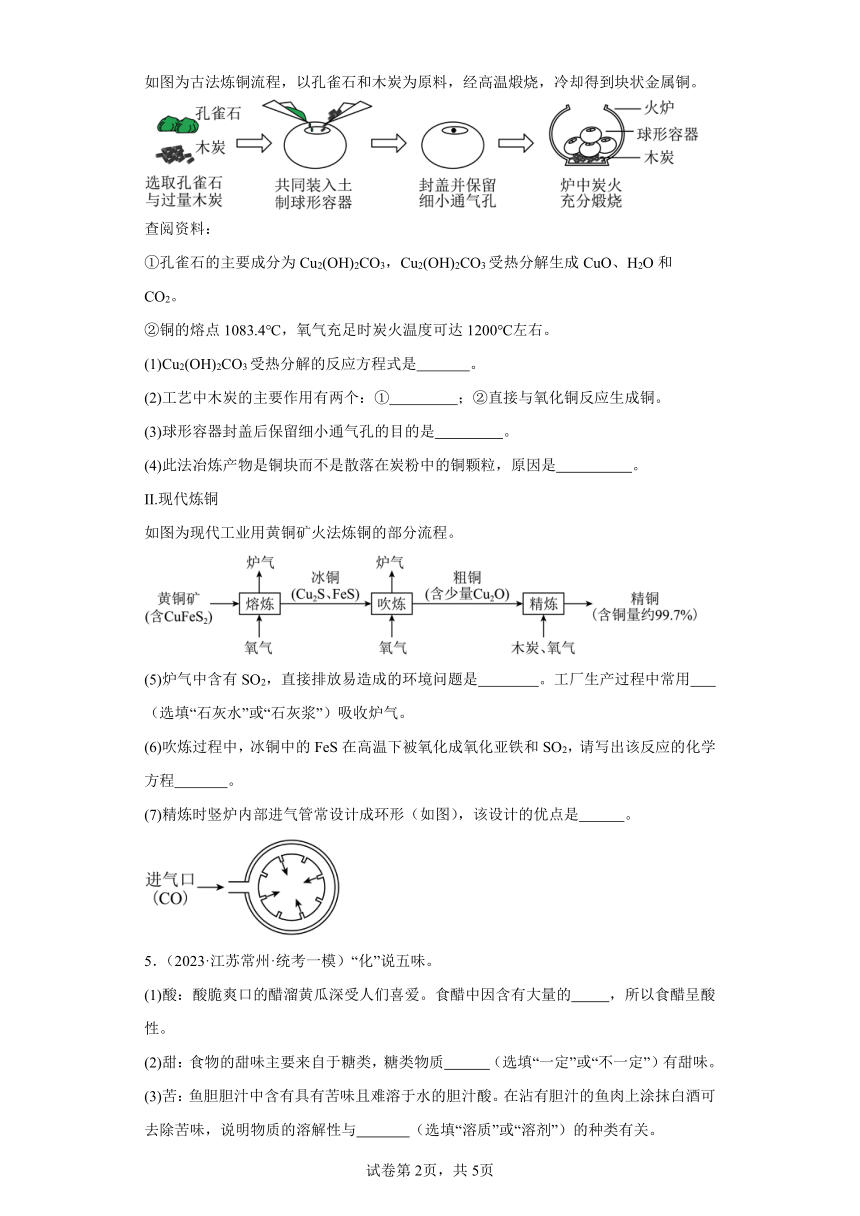 如图为古法炼铜流程，以孔雀石和木炭为原料，经高温煅烧，冷却得到块状金属铜。
孔雀石
木炭
选取孔雀石
与过量木炭
共同装入土
制球形容器
封盖并保留
细小通气孔
火炉
球形容器
木炭
炉中炭火
充分煅烧
查阅资料：
①孔雀石的主要成分为 Cu₂(OH)₂CO₃，Cu₂(OH)₂CO₃受热分解生成 CuO、H₂O 和
CO₂。
②铜的熔点 1083.4℃，氧气充足时炭火温度可达 1200℃左右。
(1)Cu₂(OH)₂CO₃受热分解的反应方程式是_______。
(2)工艺中木炭的主要作用有两个：①_________；②直接与氧化铜反应生成铜。
(3)球形容器封盖后保留细小通气孔的目的是_________。
(4)此法冶炼产物是铜块而不是散落在炭粉中的铜颗粒，原因是__________。
II.现代炼铜
如图为现代工业用黄铜矿火法炼铜的部分流程。
炉气
炉气
黄铜矿
(含CuFeS₂)
熔炼
冰铜
(Cu₂S、FeS)
吹炼
粗铜
(含少量Cu₂O)
精炼
精铜
(含铜量约99.7%)
氧气
氧气
木炭、氧气
(5)炉气中含有 SO₂，直接排放易造成的环境问题是________。工厂生产过程中常用___
（选填“石灰水”或“石灰浆”）吸收炉气。
(6)吹炼过程中，冰铜中的 FeS 在高温下被氧化成氧化亚铁和 SO₂，请写出该反应的化学
方程_______。
(7)精炼时竖炉内部进气管常设计成环形（如图），该设计的优点是______。
进气口
(CO)
5．（2023·江苏常州·统考一模）“化”说五味。
(1)酸：酸脆爽口的醋溜黄瓜深受人们喜爱。食醋中因含有大量的_____，所以食醋呈酸
性。
(2)甜：食物的甜味主要来自于糖类，糖类物质______（选填“一定”或“不一定”）有甜味。
(3)苦：鱼胆胆汁中含有具有苦味且难溶于水的胆汁酸。在沾有胆汁的鱼肉上涂抹白酒可
去除苦味，说明物质的溶解性与_______（选填“溶质”或“溶剂”）的种类有关。
试卷第 2页，共 5页